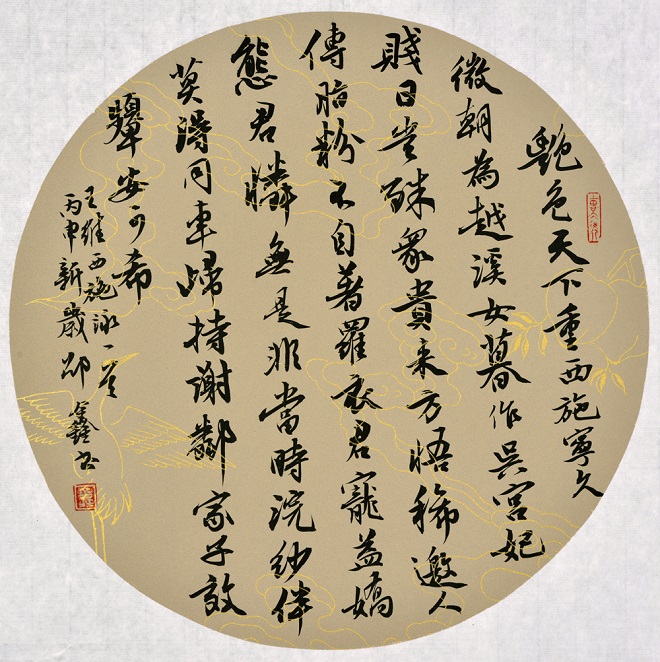 艷色天下重西施寧久
微朝為越溪女暮作吳宮妃
賤日豈殊衆貴來方悟稀邀人
傅脂粉不自著羅衣君寵益嬌
態君憐無是非當時浣紗伴
莫得同車歸持謝鄰家子效
顰安可希
王維西施詠一首
丙申新歲書